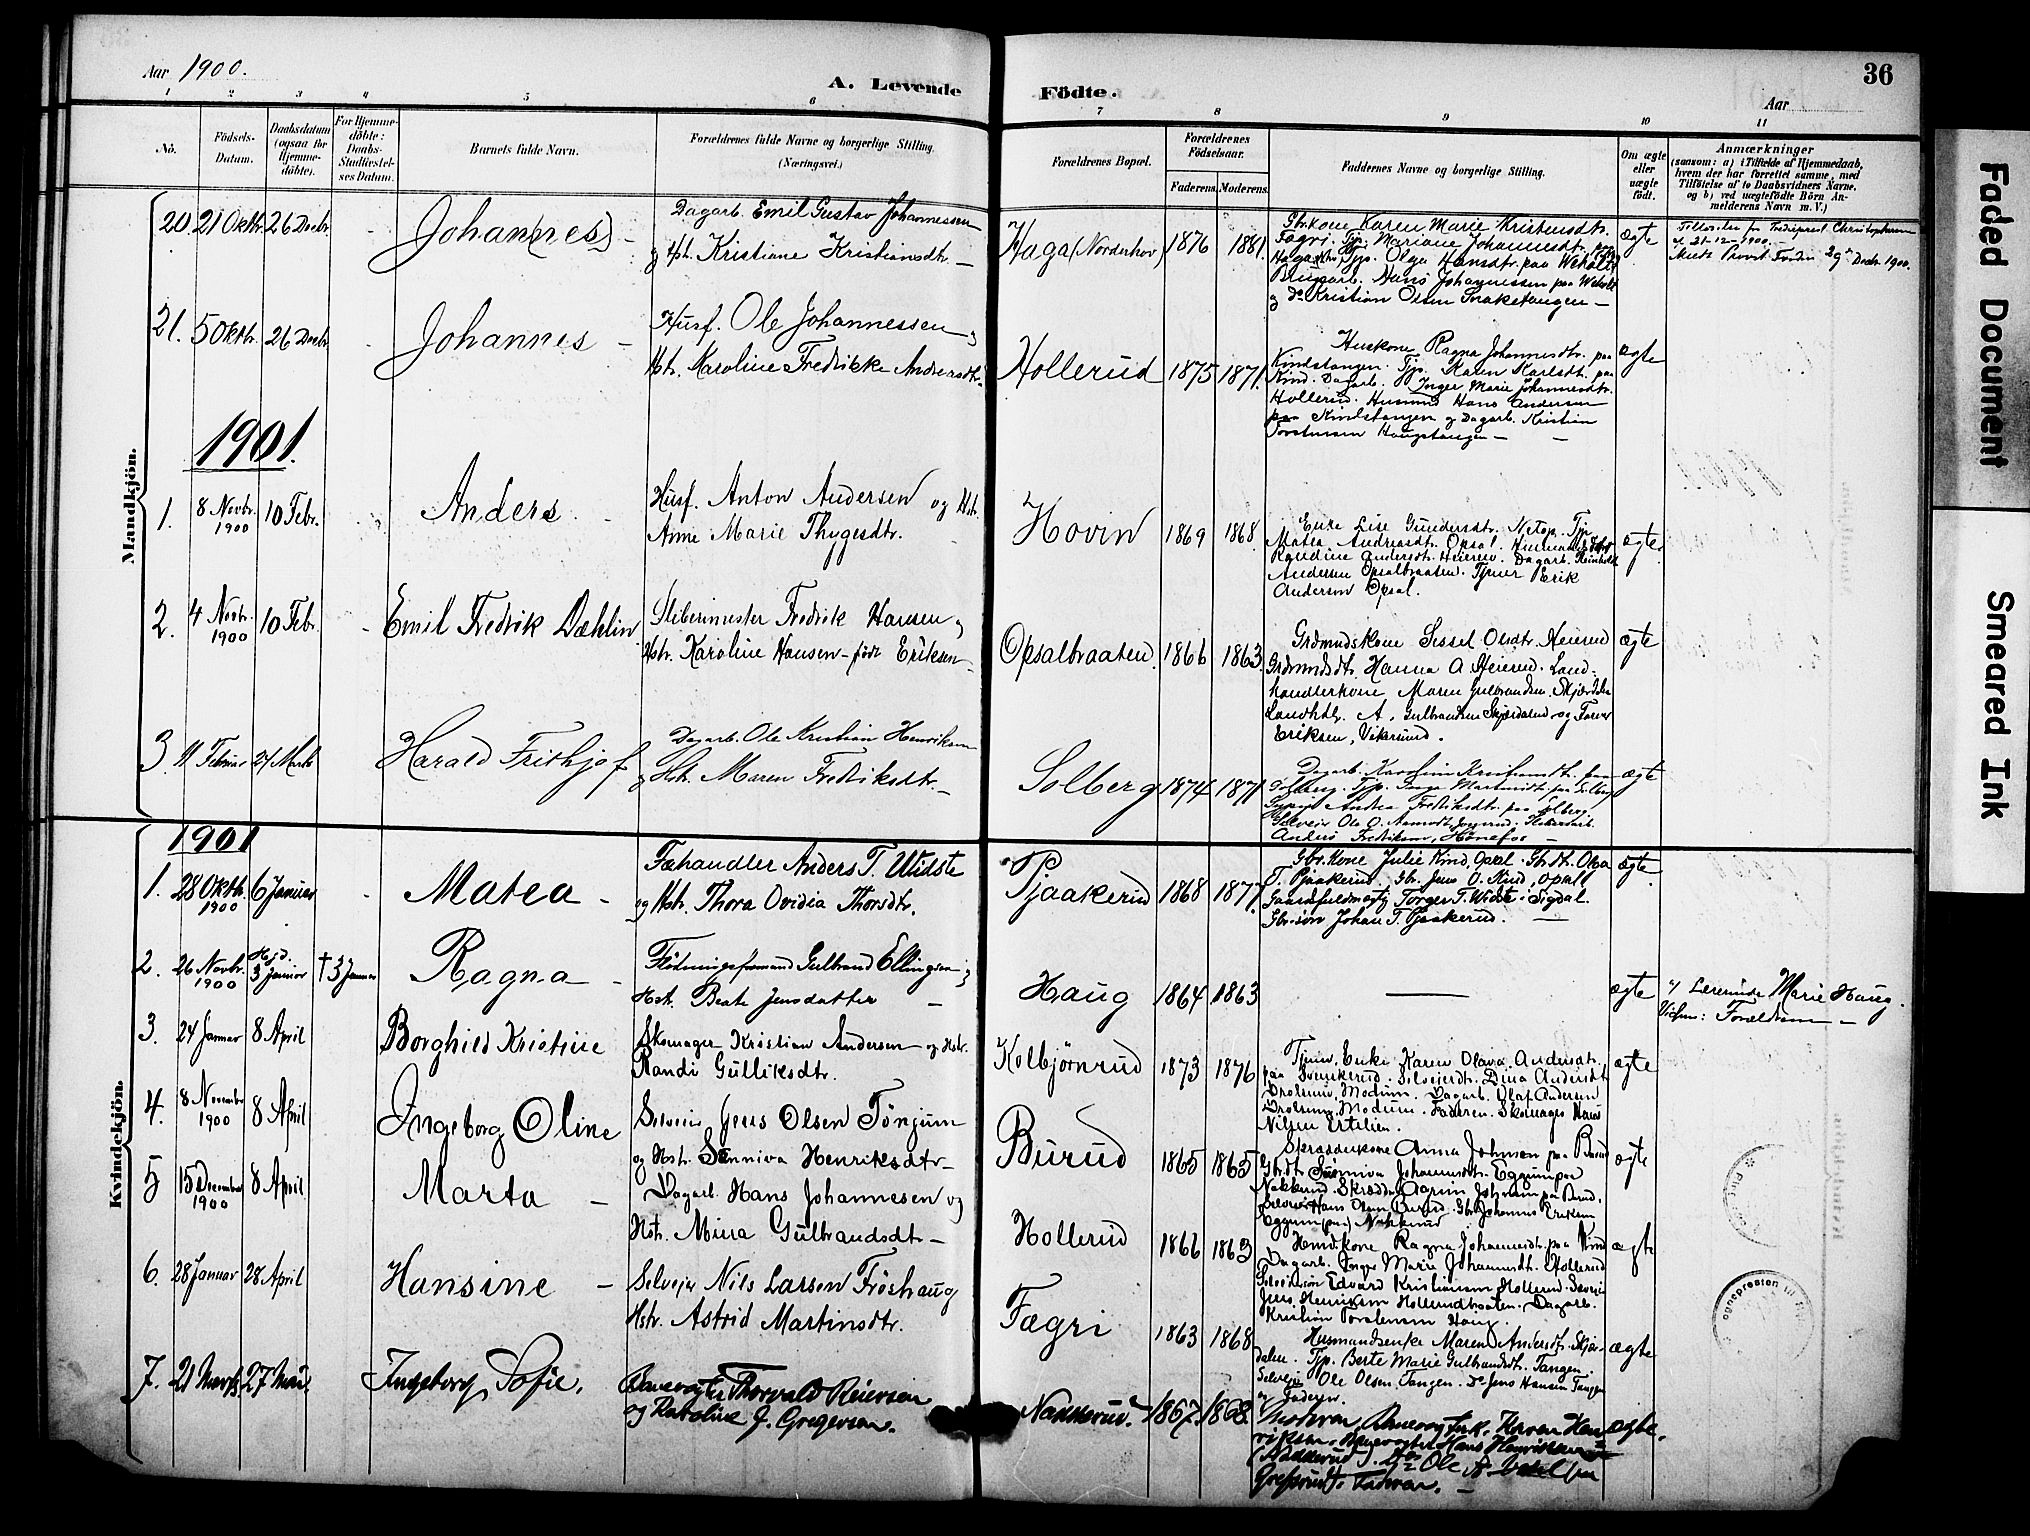 Aar 1900.
A. Levende Födte.
36
Aar
1 2 3 4 5 6 7 8 9 10 11
No.
Födsels-Datum.
Daabsdatum (ogsaa for Hjemme-döbte).
For Hjemme-döbte: Daabs-Stadfæstel-ses Datum.
Barnets fulde Navn.
Forældrenes fulde Navne og borgerlige Stilling. (Næringsvei.)
Forældrenes Bopæl.
Forældrenes Födselsaar.
Faderens. Moderens.
Faddernes Navne og borgerlige Stilling.
Om ægte eller uægte födt.
Anmærkninger
(saasom: a) i Tilfælde af Hjemmedaab, hvem der har forrettet samme, med Tilföielse af to Daabsvidners Navne, og b) ved uægtefödte Börn Anmelderens Navn m. V.)
Mandkjön.
20. 21 Oktbr. 26 Decbr. Johan(nes)
Dagarb. Emil Gustav Johannessen
og Hst. Kristiane Kristiansdtr.
Haga (Norderhov) 1876 1881.
Gbrkone Karen Marie Kristensdtr.
Fægri. Tjp. Mariane Johannesdtr. paa
Tjp. Olga Hansdtr. paa
Hans Johannessen paa
og do Kristian Olsen
ægte
21-12-1900.
Decbr 1900.
21. 5 Oktbr. 26 Decbr. Johannes
Husf. Ole Johannessen og
Hst. Karoline Fredrikke Andersdtr.
Hollerud 1875 1871.
Huskone Ragna Johannesdtr. paa
Kindstangen. Tjp. Karen Karlsdtr. paa
Kind. Dagarb. Inger Marie Johannesdtr.
Hollerud. Husmand Hans Andersen
paa Kindstangen og Dagarb. Kristian
Torstensen Haugstangen
ægte
1901.
1. 8 Novbr. 1900 10 Febr. Anders
Husf. Anton Andersen og Hst.
Anne Marie Thygesdtr.
Hovin 1869 1868.
Enke Lise Gundersdtr. Tjp.
Matea Andreasdtr. Opsal.
Randine Andersdtr. Heierud. Dagarb. Reinholdt
Andersen Opsalbraaten. Tjener Erik
Anderson Opsal.
ægte
2. 4 Novbr. 1900 10 Febr. Emil Fredrik Dæhlin
Slibermester Fredrik Hansen og
Hst. Karoline Hansen - født Eriksen
Opsalbraaten. 1866 1863.
Grdmandskone Sissel Olsdtr. Heierud
Grdmandsdtr. Hanna A. Heierud. Land-
handlerkone Maren Gulbrandsen. Skjærdalen
Landhdl. A. Gulbrandsen Skjærdalen og Farver
Eriksen, Vikersund.
ægte
3. 11 Februar 24 Marts Harald Frithjof
Dagarb. Ole Kristian Henriksen
og Hst. Maren Fredriksdtr.
Solberg 1874 1871
Dagarb. Karoline Kristiansdtr. paa
Solberg. Tjp. Inga Martinsdtr. paa Solberg
Andrea Fredriksdtr. paa Solberg.
Selveier Ole O.
Anders Fredriksen, Hønefos
ægte
Kvindekjön.
1901
1. 28 Oktbr. 1900 6 Januar Matea
Fæhandler Anders T. Utidste
og Hst. Thora Ovidia Thorsdtr.
Pjaakerud 1868 1877.
Gbr.kone Julie Kind, Opsal. Gbr.dtr. Olea
T. Pjaakerud. Gbr. Jens O. Kind, Opsal
Gaardsfuldmægtig Torger T. Sigdal.
Gbr.søn Johan T. Pjaakerud.
ægte
2. 26 Novbr. 1900 Hjd. 3 Januar † 3 Januar Ragna
Flødningsformand Gulbrand Ellingsen og
Hst. Beate Jensdatter
Haug 1864 1863
ægte
Lærerinde Marie Haug.
Forældrene
3. 24 Januar 8 April Borghild Kristine
Skomager Kristian Andersen og Hst.
Randi Gulliksdtr.
Kolbjørnrud 1873 1876
Enke Karen Olava Andersdtr.
paa Selveierdtr. Dina Andersdtr.
Modum. Dagarb. Olaf Andersen
Modum. Faderen. Skomager Hans
Nilsen
ægte
4. 8 November 1900 8 April Ingeborg Oline
Selveier Jens Olsen Tønjum
og Hst. Sønniva Henriksdtr.
Burud 1865 1865
Skrædderkone Anna Johnsen paa Burud
Gbrdtr. Sønniva Johannesdtr. Eggum paa
Nakkerud. Skrædder Johnsen paa Burud.
Selveier Hans Olsen Burud. Gbr. Johannes Eriksen
Eggum (paa) Nakkerud
ægte
5 15 December 1900 8 April Marta
Dagarb. Hans Johannesen og
Hst. Mina Gulbrandsdtr.
Hollerud 1866 1863
Husm.kone Ragna Johannesdtr. paa Kind
Dagarb. Inger Marie Johannesdtr. Hollerud
Selveiersøn Edvard Kristiansen Hollerud. Selveier
Jens Henriksen Hollerudbraaten. Dagarb.
Kristian Torstensen Haug.
ægte
6. 28 Januar 28 April Hansine
Selveier Nils Larsen Frøshaug
Hst. Astrid Martinsdtr.
Fægri 1863 1868
Husmandsenke Maren Andersdtr. Skjær-
dalen. Tjp. Berte Marie Gulbrandsdtr. Tangen.
Selveier Ole Olsen Tangen. Do Jens Hansen Tangen
og Faderen
ægte
7. 21 Marts 27 Mai. Ingeborg Sofie.
Banevogter Thorvald Reiersen
og Karoline J. Gregersen.
Nakkerud. 1867. 1868.
Moderen, Karen Hen-
riksen. Banevogter Hans Henriksen
(Nakkerud). Ole A.
Faderen.
ægte.
Sognepresten til
Faded Document
Smeared Ink